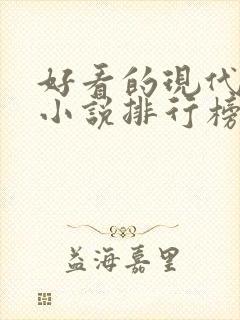 好看的现代
小说排行榜
益海嘉里